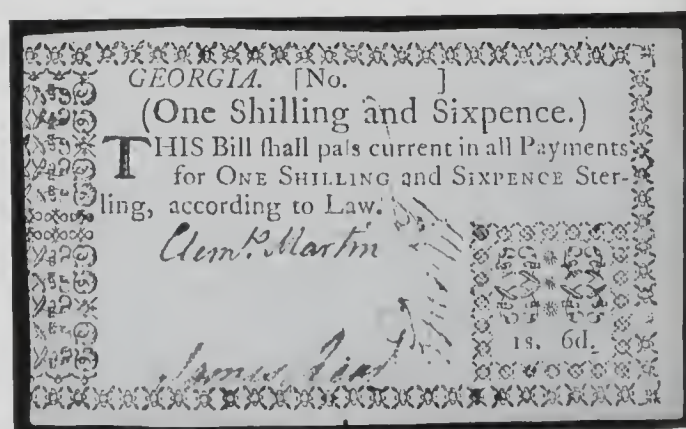 GEORGIA. [No. ]
(One Shilling and Sixpence.)
THIS Bill ſhall paſs current in all Payments
for ONE SHILLING and SIXPENCE Ster-
ling, according to Law.
Clemt. Martin
1s. 6d.
James